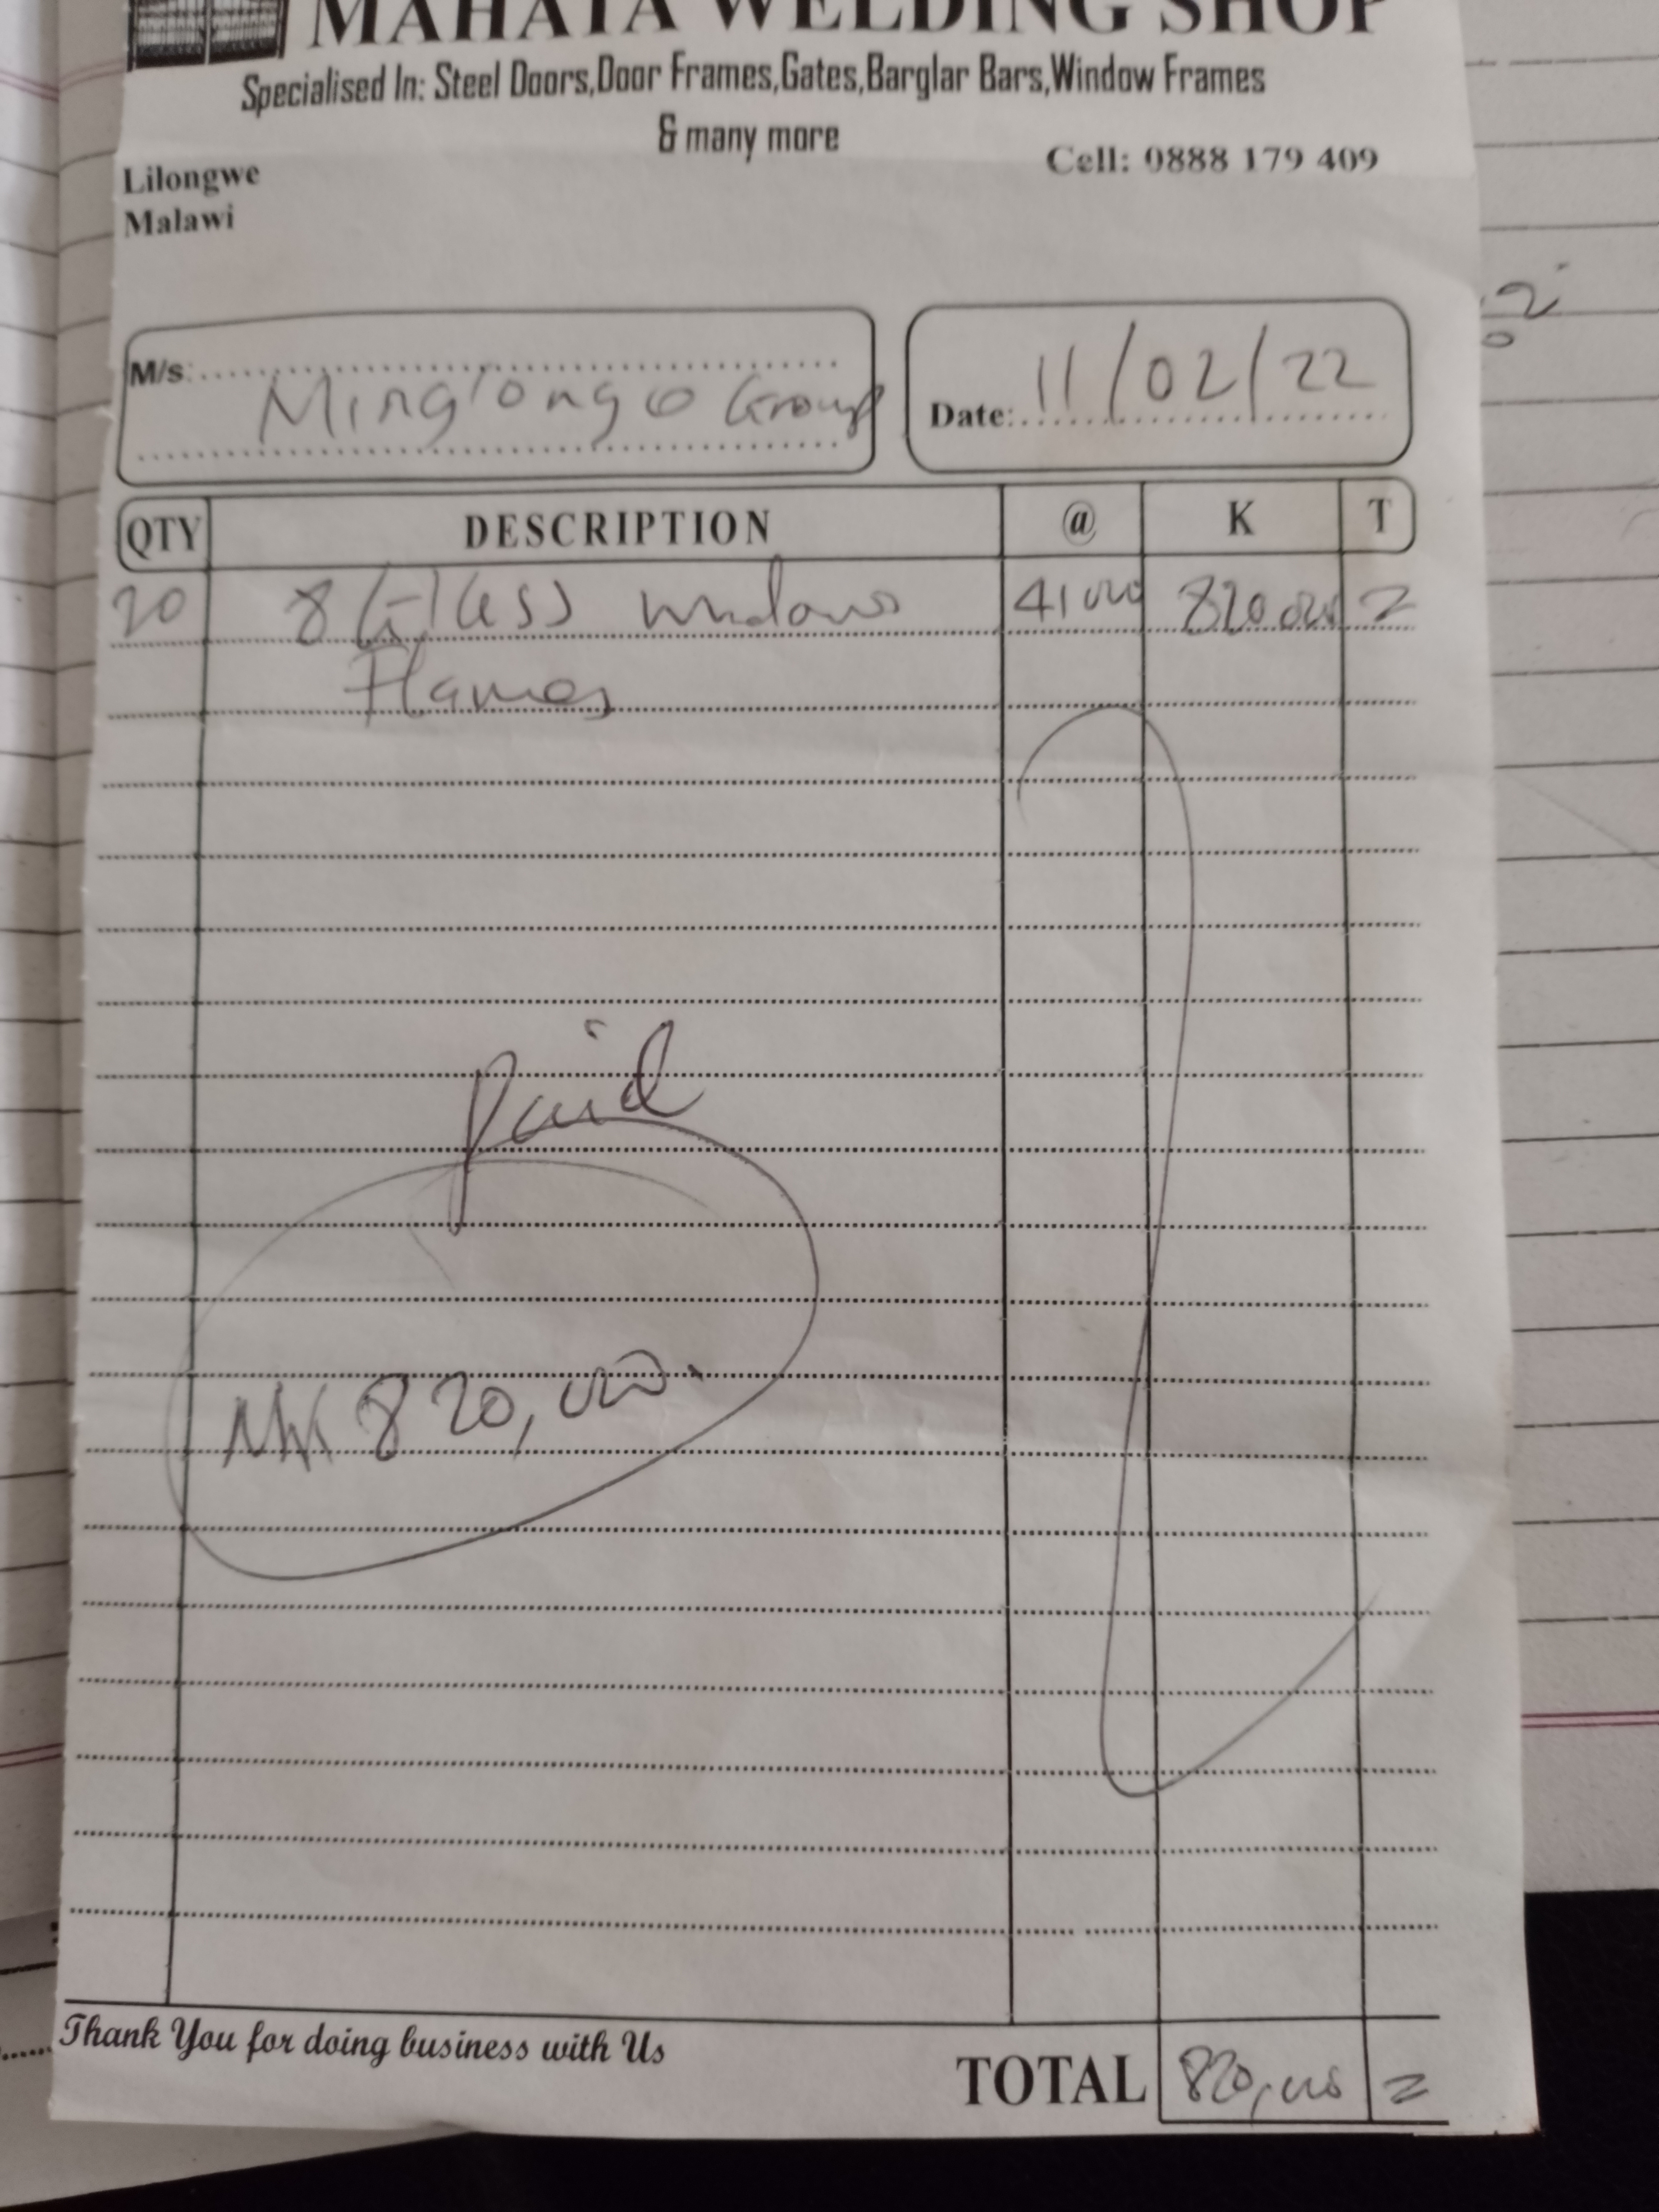 MAHATA WELDING SHOP
Specialised In: Steel Doors,Door Frames,Gates,Barglar Bars,Window Frames
& many more
Lilongwe
Malawi
Cell: 0888 179 409
M/s:
Minglongo Group
Date: 11/02/22
QTY DESCRIPTION @ K T
20 8 Glass Windows 41000 820,000 =
Flames
Paid
MK 820,000.
Thank You for doing business with Us
TOTAL 820,000 =